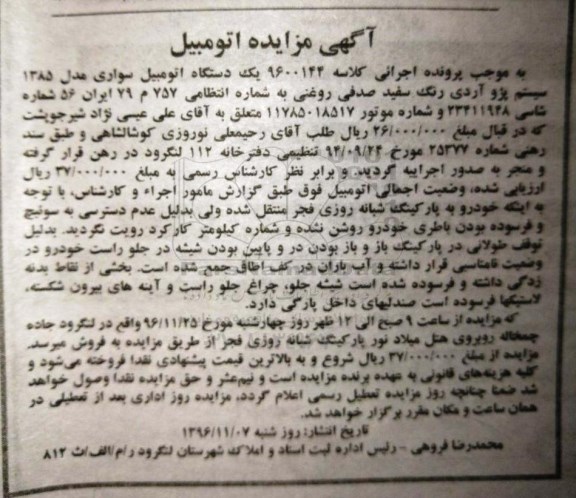 آگهی مزایده اتومبیل
به موجب پرونده اجرائی کلاسه ۹۶۰۰۱۴۴ یک دستگاه اتومبیل سواری مدل ۱۳۸۵
سیستم پژو آردی رنگ سفید صدفی روغنی به شماره انتظامی ۷۵۷ م ۷۹ ایران ۵۶ شماره
شاسی ۲۳۴۱۱۹۴۸ و شماره موتور ۱۱۷۸۵۰۱۸۵۱۷ متعلق به آقای علی عیسی نژاد شیرجوپشت
که در قبال مبلغ ۲۶/۰۰۰/۰۰۰ ریال طلب آقای رحیمعلی نوروزی کوشالشاهی و طبق سند
رهنی شماره ۲۵۳۷۷ مورخ ۹۴/۰۹/۲۴ تنظیمی دفترخانه ۱۱۲ لنگرود در رهن قرار گرفته
و منجر به صدور اجراییه گردید. و برابر نظر کارشناس رسمی به مبلغ ۳۷/۰۰۰/۰۰۰ ریال
ارزیابی شده، وضعیت اجمالی اتومبیل فوق طبق گزارش مامور اجراء و کارشناس، با توجه
به اینکه خودرو به پارکینگ شبانه روزی فجر منتقل شده ولی بدلیل عدم دسترسی به سوئیچ
و فرسوده بودن باطری خودرو روشن نشده و شماره کیلومتر کارکرد رویت نگردید. بدلیل
توقف طولانی در پارکینگ باز و باز بودن در و پایین بودن شیشه در جلو راست خودرو در
وضعیت نامناسبی قرار داشته و آب باران در کف اطاق جمع شده است. بخشی از نقاط بدنه
زدگی داشته و فرسوده شده است شیشه جلو، چراغ جلو راست و آینه های بیرون شکسته،
لاستیکها فرسوده است صندلیهای داخل پارگی دارد.
که مزایده از ساعت ۹ صبح الی ۱۲ ظهر روز چهارشنبه مورخ ۹۶/۱۱/۲۵ واقع در لنگرود جاده
چمخاله روبروی هتل میلاد نور پارکینگ شبانه روزی فجر از طریق مزایده به فروش میرسد.
مزایده از مبلغ ۳۷/۰۰۰/۰۰۰ ریال شروع و به بالاترین قیمت پیشنهادی نقدا فروخته می‌شود و
کلیه هزینه‌های قانونی به عهده برنده مزایده است و نیم‌عشر و حق مزایده نقدا وصول خواهد
شد ضمنا چنانچه روز مزایده تعطیل رسمی اعلام گردد، مزایده روز اداری بعد از تعطیلی در
همان ساعت و مکان مقرر برگزار خواهد شد.
تاریخ انتشار: روز شنبه ۱۳۹۶/۱۱/۰۷
محمدرضا فروهی - رئیس اداره ثبت اسناد و املاک شهرستان لنگرود ر/م/الف/ث ۸۱۲